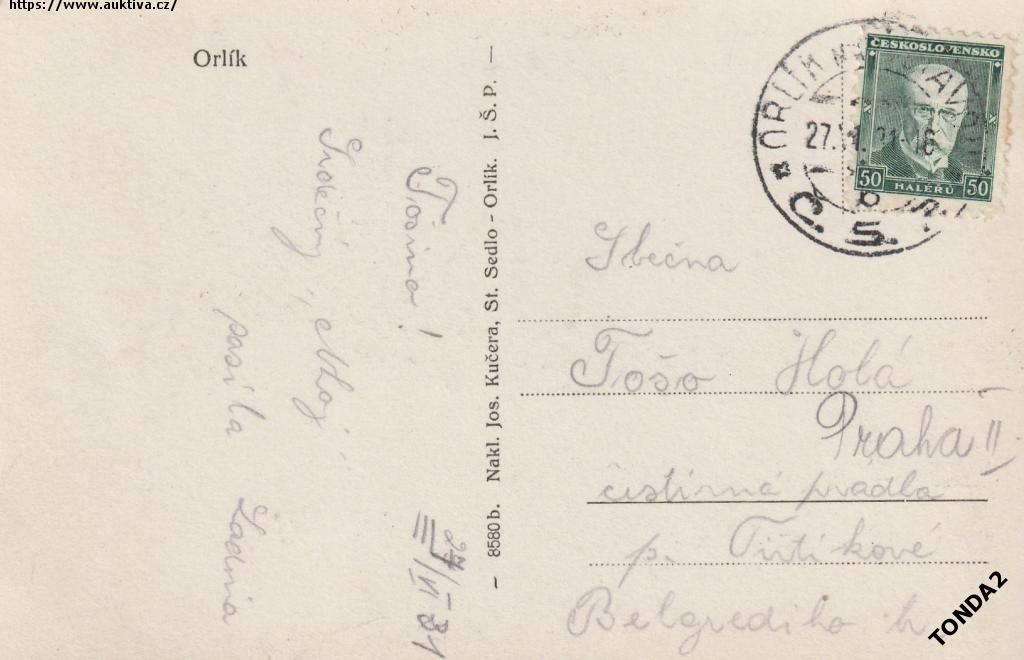 https://www.auktiva.cz/
Orlík
Tošino!
Srdečný "Ahoj"
posílá Ladina
27/VI 31
– 8580 b. Nakl. Jos. Kučera, St. Sedlo - Orlík. J. Š. P. —
ORLÍK
27. 31-16
Č. S.
ČESKOSLOVENSKO
50 HALÉŘŮ 50
Sbečna
Tošo Holá
Praha II
čistírna prádla
p.
h
TONDA2